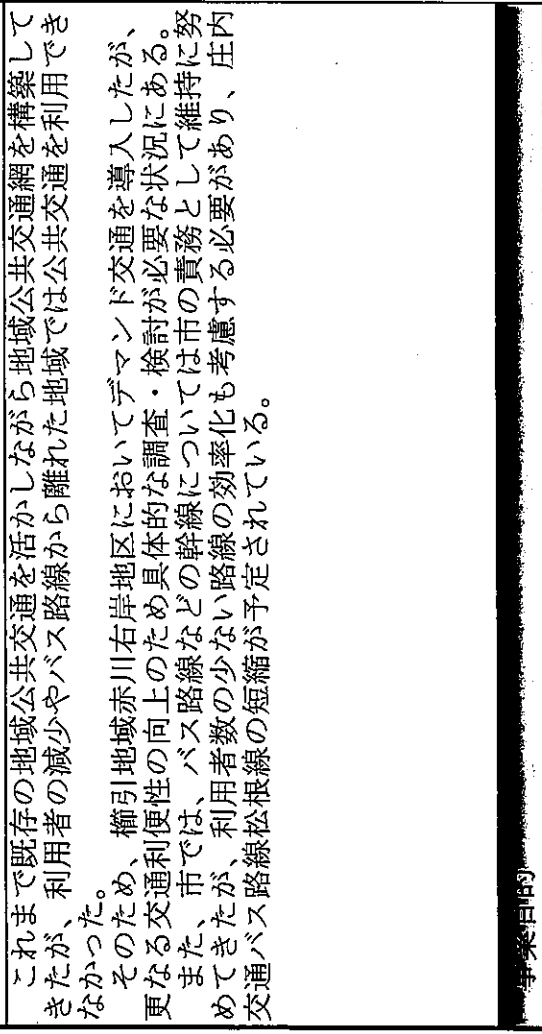 これまで既存の地域公共交通を活かしながら地域公共交通網を構築して
きたが、利用者の減少やバス路線から離れた地域では公共交通を利用でき
なかった。
そのため、櫛引地域赤川右岸地区においてデマンド交通を導入したが、
更なる交通利便性の向上のため具体的な調査・検討が必要な状況にある。
また、市では、バス路線などの幹線については市の責務として維持に努
めてきたが、利用者数の少ない路線の効率化も考慮する必要があり、庄内
交通バス路線松根線の短縮が予定されている。
事業目的